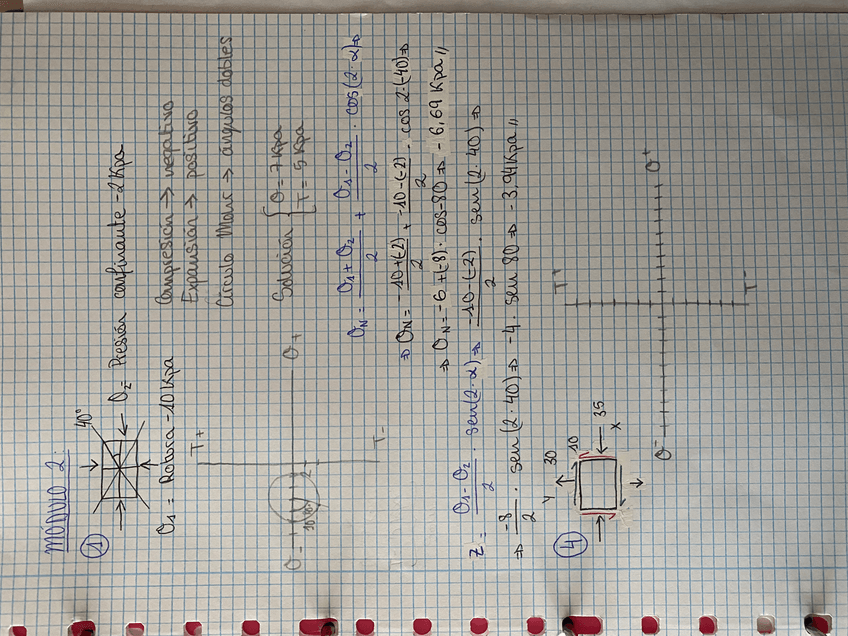 MÓDULO 2:
① 40°
σ2 = Presión confinante -2 Kpa
σ1 = Rotura -10 Kpa
Compresión → negativo
Expansión → positivo
Círculo Mohr → ángulos dobles
T+
σ- σ+
T-
Solución { σ = 7 Kpa
T = 5 Kpa
σN = (σ1 + σ2)/2 + (σ1 - σ2)/2 · cos(2·α) ⇒
⇒ σN = (-10 + (-2))/2 + (-10 - (-2))/2 · cos 2·(-40) ⇒
⇒ σN = -6 + (-8) · cos -80 ⇒ -6,69 Kpa //
Z = (σ1 - σ2)/2 · sen(2·α) ⇒ (-10 - (-2))/2 · sen(2·40) ⇒
⇒ -8/2 · sen(2·40) ⇒ -4 · sen 80 ⇒ -3,94 Kpa //
④ Y 30
10
35
X
T+
σ- σ+
T-